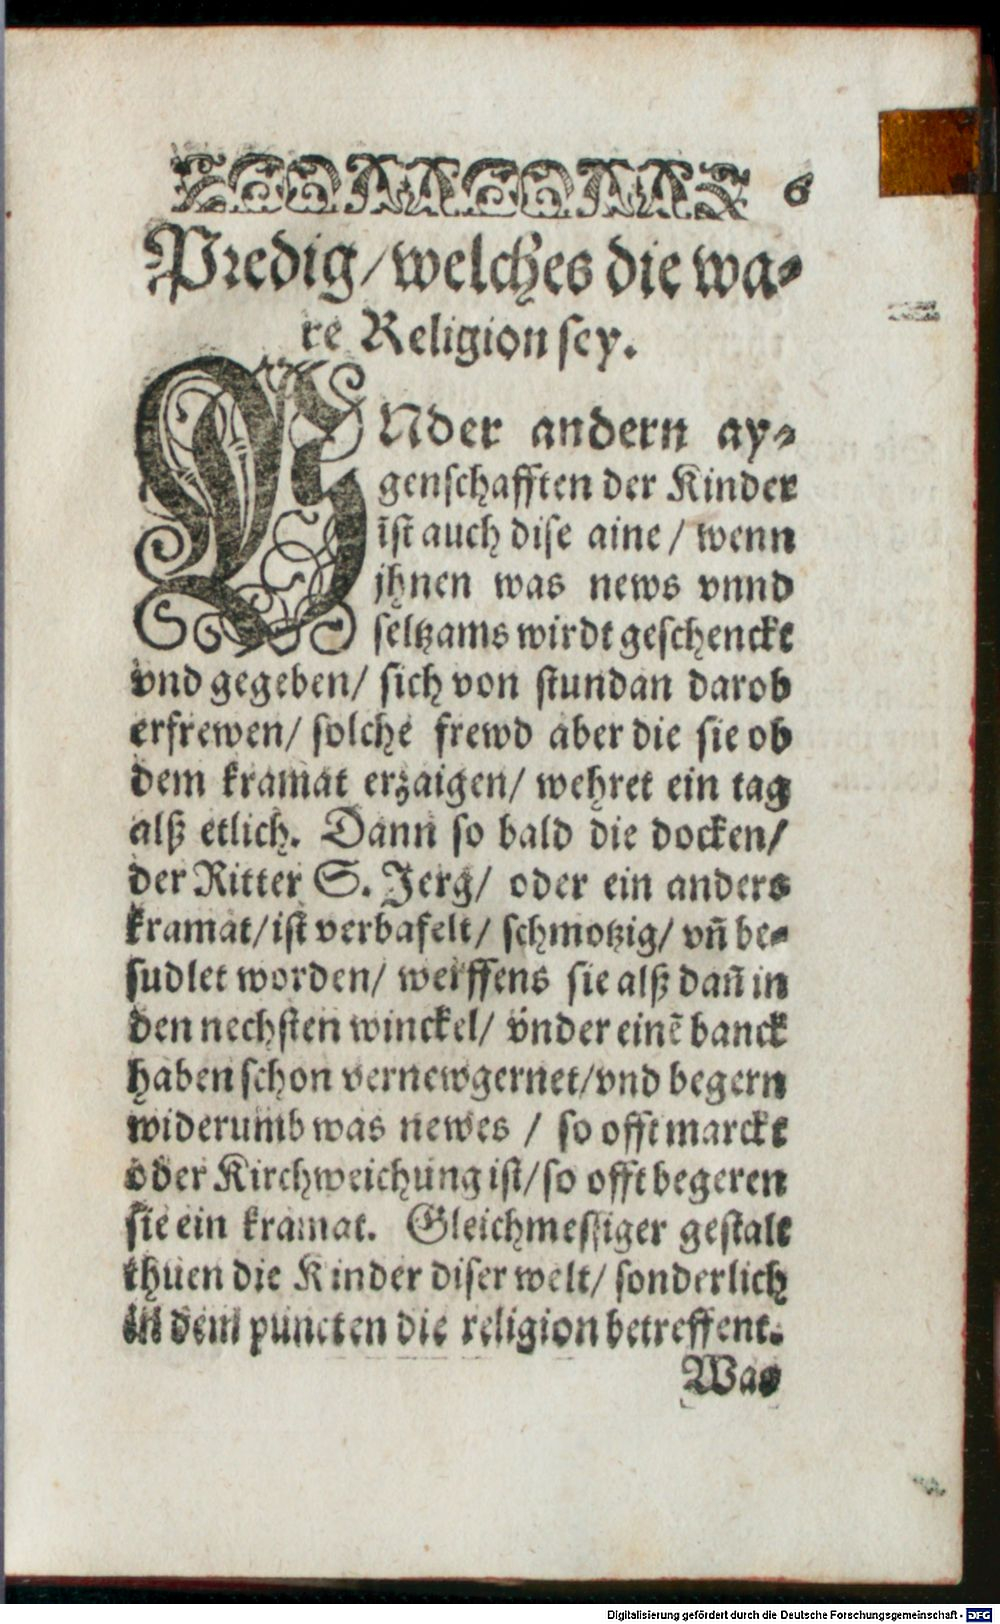 6
Predig/ welches die wa⸗
re Religion sey.
VNder andern ay⸗
genschafften der Kinder
ist auch dise aine / wenn
jhnen was news vnnd
seltzams wirdt geschenckt
vnd gegeben/ sich von stundan darob
erfrewen/ solche frewd aber die sie ob
dem kramat erzaigen/ wehret ein tag
alß etlich. Dann so bald die docken/
der Ritter S. Jerg/ oder ein anders
kramat/ ist verbafelt/ schmotzig/ vn̄ be⸗
sudlet worden/ werffens sie alß dan̄ in
den nechsten winckel/ vnder einē banck
haben schon vernewgernet/ vnd begern
widerumb was newes / so offt marckt
oder Kirchweichung ist/ so offt begeren
sie ein kramat. Gleichmessiger gestalt
thuen die Kinder diser welt/ sonderlich
in dem puncten die religion betreffent.
Was
Digitalisierung gefördert durch die Deutsche Forschungsgemeinschaft - DFG